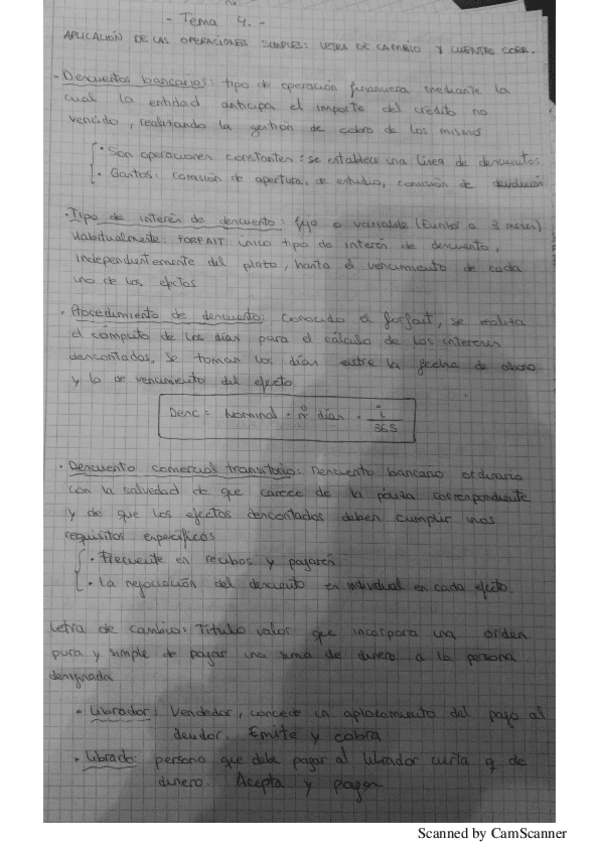 - Tema 4. -
APLICACIÓN DE LAS OPERACIONES SIMPLES: LETRA DE CAMBIO Y CUENTAS CORR.
· Descuentos bancarios: tipo de operación financiera mediante la
cual la entidad anticipa el importe del crédito no
vencido, realizando la gestión de cobro de los mismos
· Son operaciones constantes: se establece una línea de descuentos
· Gastos: comisión de apertura, de estudio, comisión de devolución
· Tipo de interés de descuento: fijo o variable (Euribor a 3 meses)
Habitualmente: FORFAIT: único tipo de interés de descuento,
independientemente del plazo, hasta el vencimiento de cada
uno de los efectos
· Procedimiento de descuento: Conocido el forfait, se realiza
el cómputo de los días para el cálculo de los intereses
descontados, se toman los días entre la fecha de abono
y la de vencimiento del efecto
Desc = Nominal · nº días · i / 365
· Descuento comercial transitorio: Descuento bancario ordinario
con la salvedad de que carece de la póliza correspondiente
y de que los efectos descontados deben cumplir unos
requisitos específicos
· Frecuente en recibos y pagarés
· La negociación del descuento es individual en cada efecto.
Letra de cambio: Título valor que incorpora una orden
pura y simple de pagar una suma de dinero a la persona
designada
· Librador: Vendedor, concede un aplazamiento del pago al
deudor. Emite y cobra
· Librado: persona que debe pagar al librador cierta q de
dinero. Acepta y pagar
Scanned by CamScanner